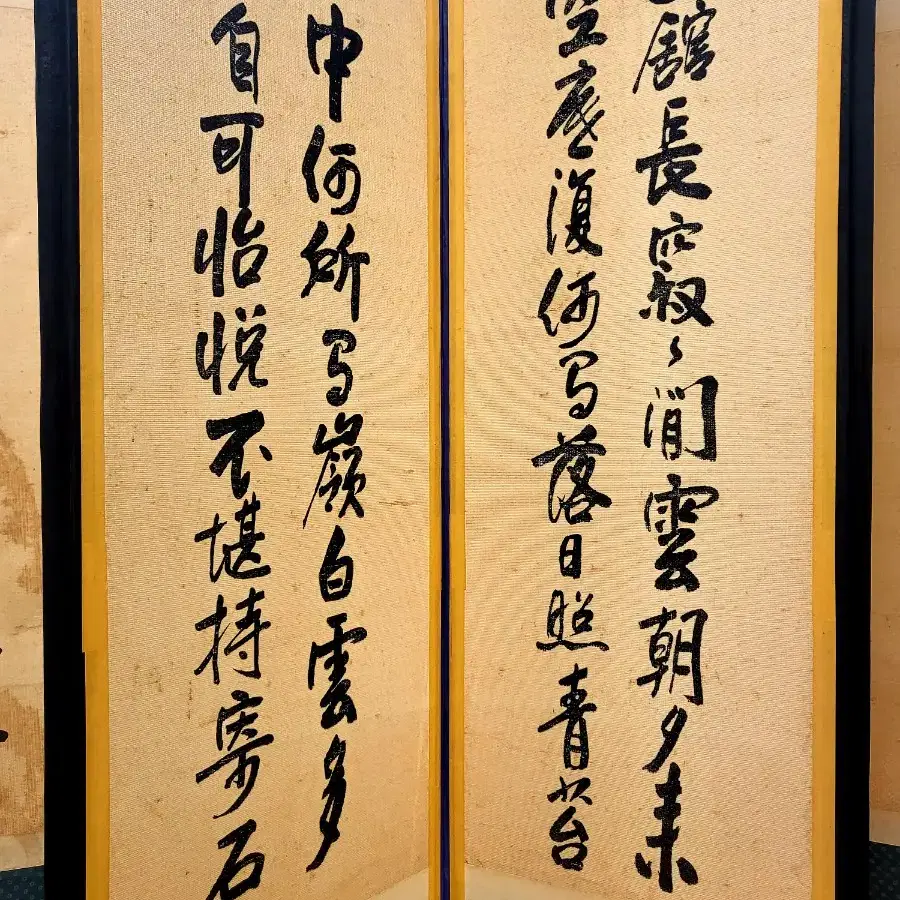 館長寂々閒雲朝夕来
空庭復何有落日照青苔
中何所有嶺白雲多
自可怡悦不堪持寄石